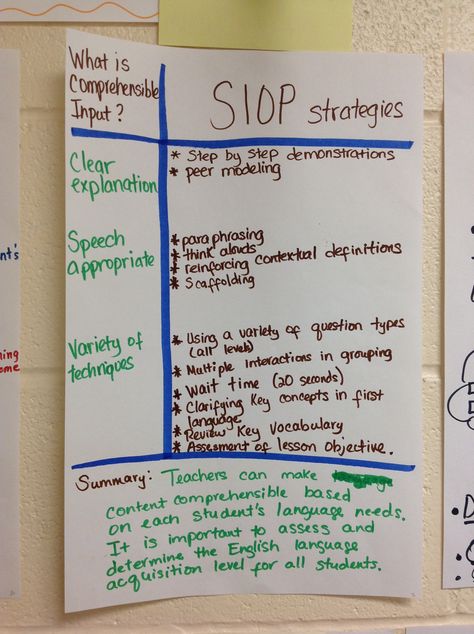 What is
Comprehensible
Input?
SIOP strategies
Clear
explanation
* Step by step demonstrations
* peer modeling
Speech
appropriate
* paraphrasing
* think alouds
* reinforcing contextual definitions
* Scaffolding
Variety of
techniques
* Using a variety of question types
(all levels)
* Multiple interactions in grouping
* Wait time (20 seconds)
* Clarifying Key concepts in first
language.
* Review Key Vocabulary
* Assessment of lesson Objective.
Summary: Teachers can make
content comprehensible based
on each student's language needs.
It is important to assess and
determine the English language
acquisition level for all students.